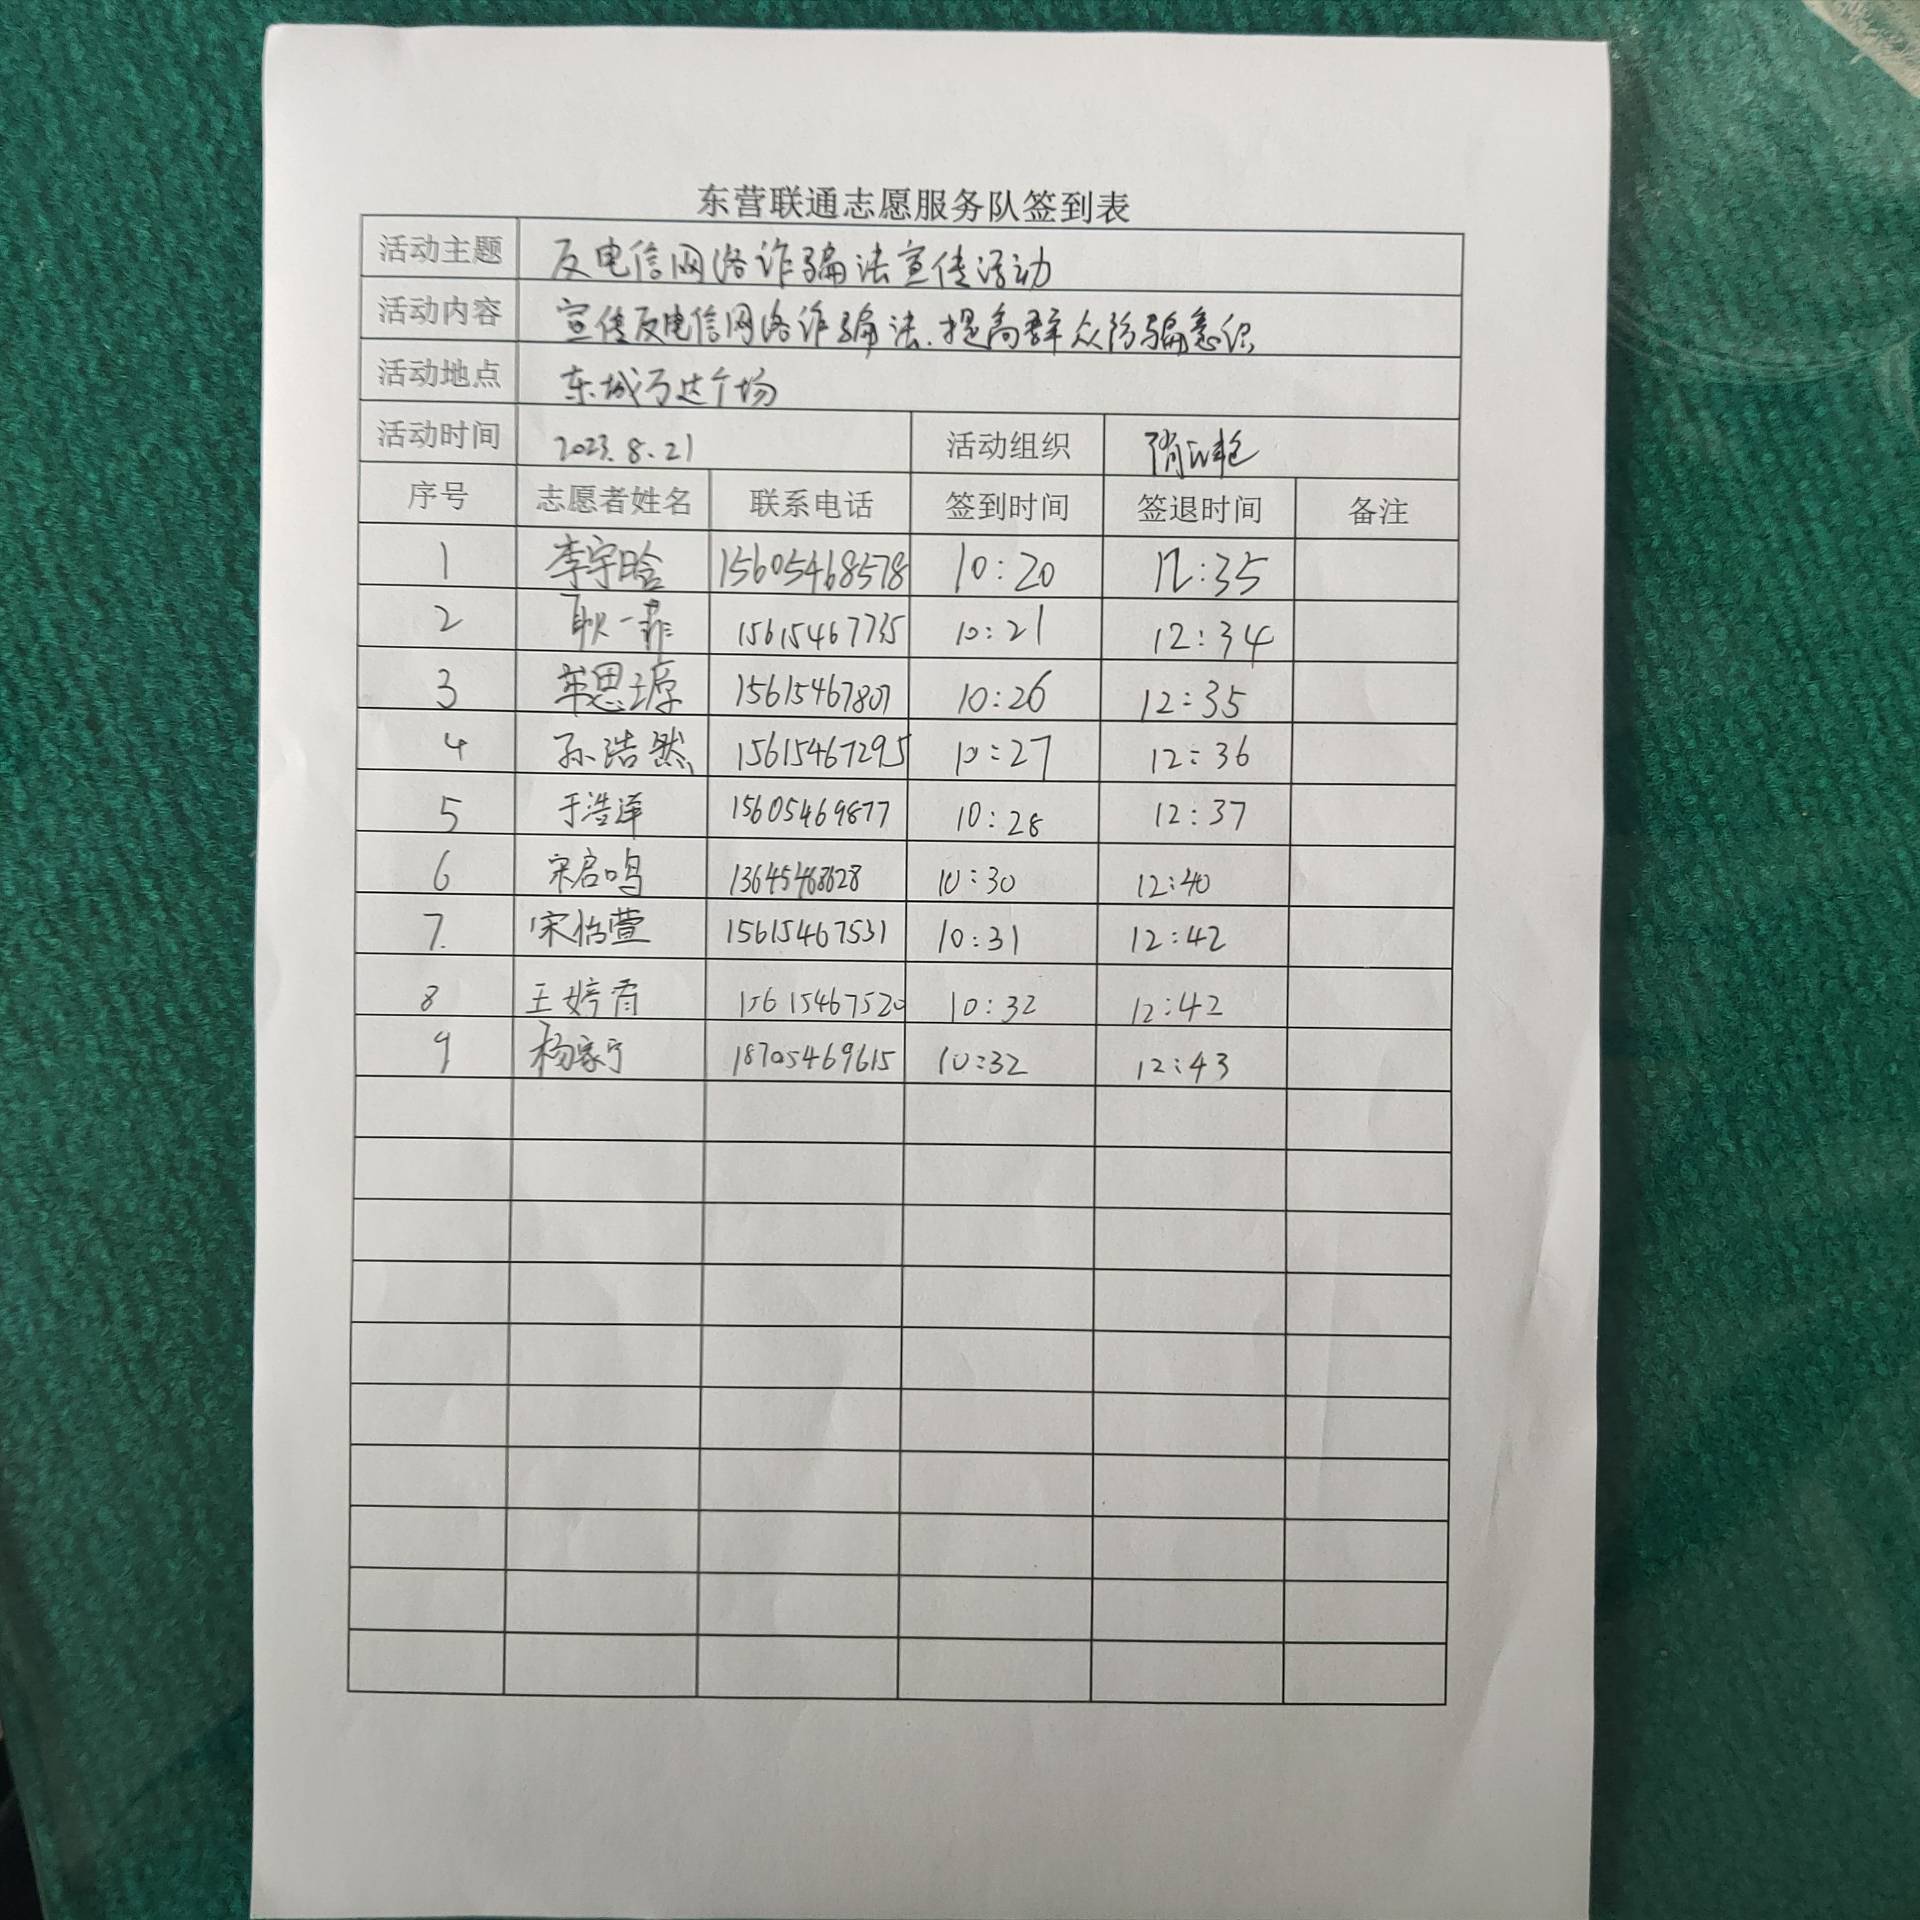 东营联通志愿服务队签到表
活动主题 反电信网络诈骗法宣传活动
活动内容 宣传反电信网络诈骗法、提高群众防骗意识
活动地点 东城万达广场
活动时间 2023.8.21 活动组织
序号 志愿者姓名 联系电话 签到时间 签退时间 备注
1 李宇晗 15605468578 10:20 12:35
2 耿一菲 15615467735 10:21 12:34
3 15615467807 10:26 12:35
4 孙浩然 15615467295 10:27 12:36
5 于浩泽 15605469877 10:28 12:37
6 宋启鸣 13645468628 10:30 12:40
7. 宋怡萱 15615467531 10:31 12:42
8 王婷 15615467520 10:32 12:42
9 杨家宁 18705469615 10:32 12:43